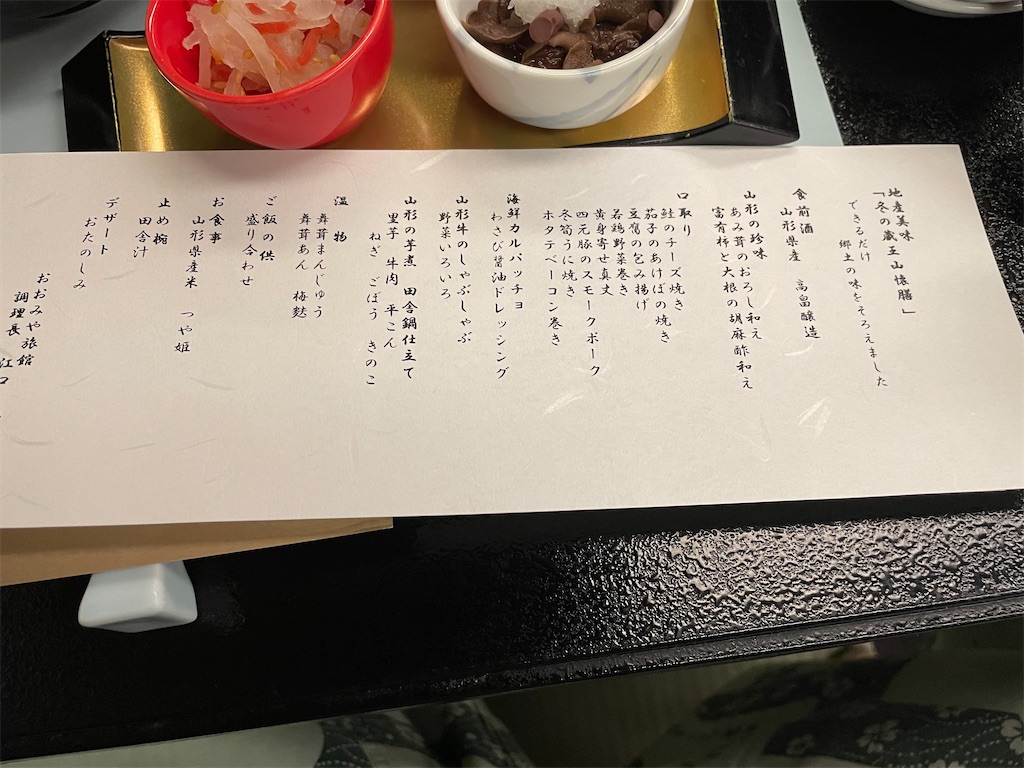 地産美味
「冬の蔵王山懐膳」
できるだけ
郷土の味をそろえました
食前酒
山形県産 高畠醸造
山形の珍味
あみ茸のおろし和え
富有柿と大根の胡麻酢和え
口取り
鮭のチーズ焼き
茄子のあけぼの焼き
豆腐の包み揚げ
若鶏野菜巻き
黄身寄せ真丈
四元豚のスモークポーク
冬筍うに焼き
ホタテベーコン巻き
海鮮カルパッチョ
わさび醤油ドレッシング
山形牛のしゃぶしゃぶ
野菜いろいろ
山形の芋煮 田舎鍋仕立て
里芋 牛肉 平こん
ねぎ ごぼう きのこ
温物
舞茸まんじゅう
舞茸あん 梅麩
ご飯の供
盛り合わせ
お食事
山形県産米 つや姫
止め椀
田舎汁
デザート
おたのしみ
おおみや旅館
調理長 江口